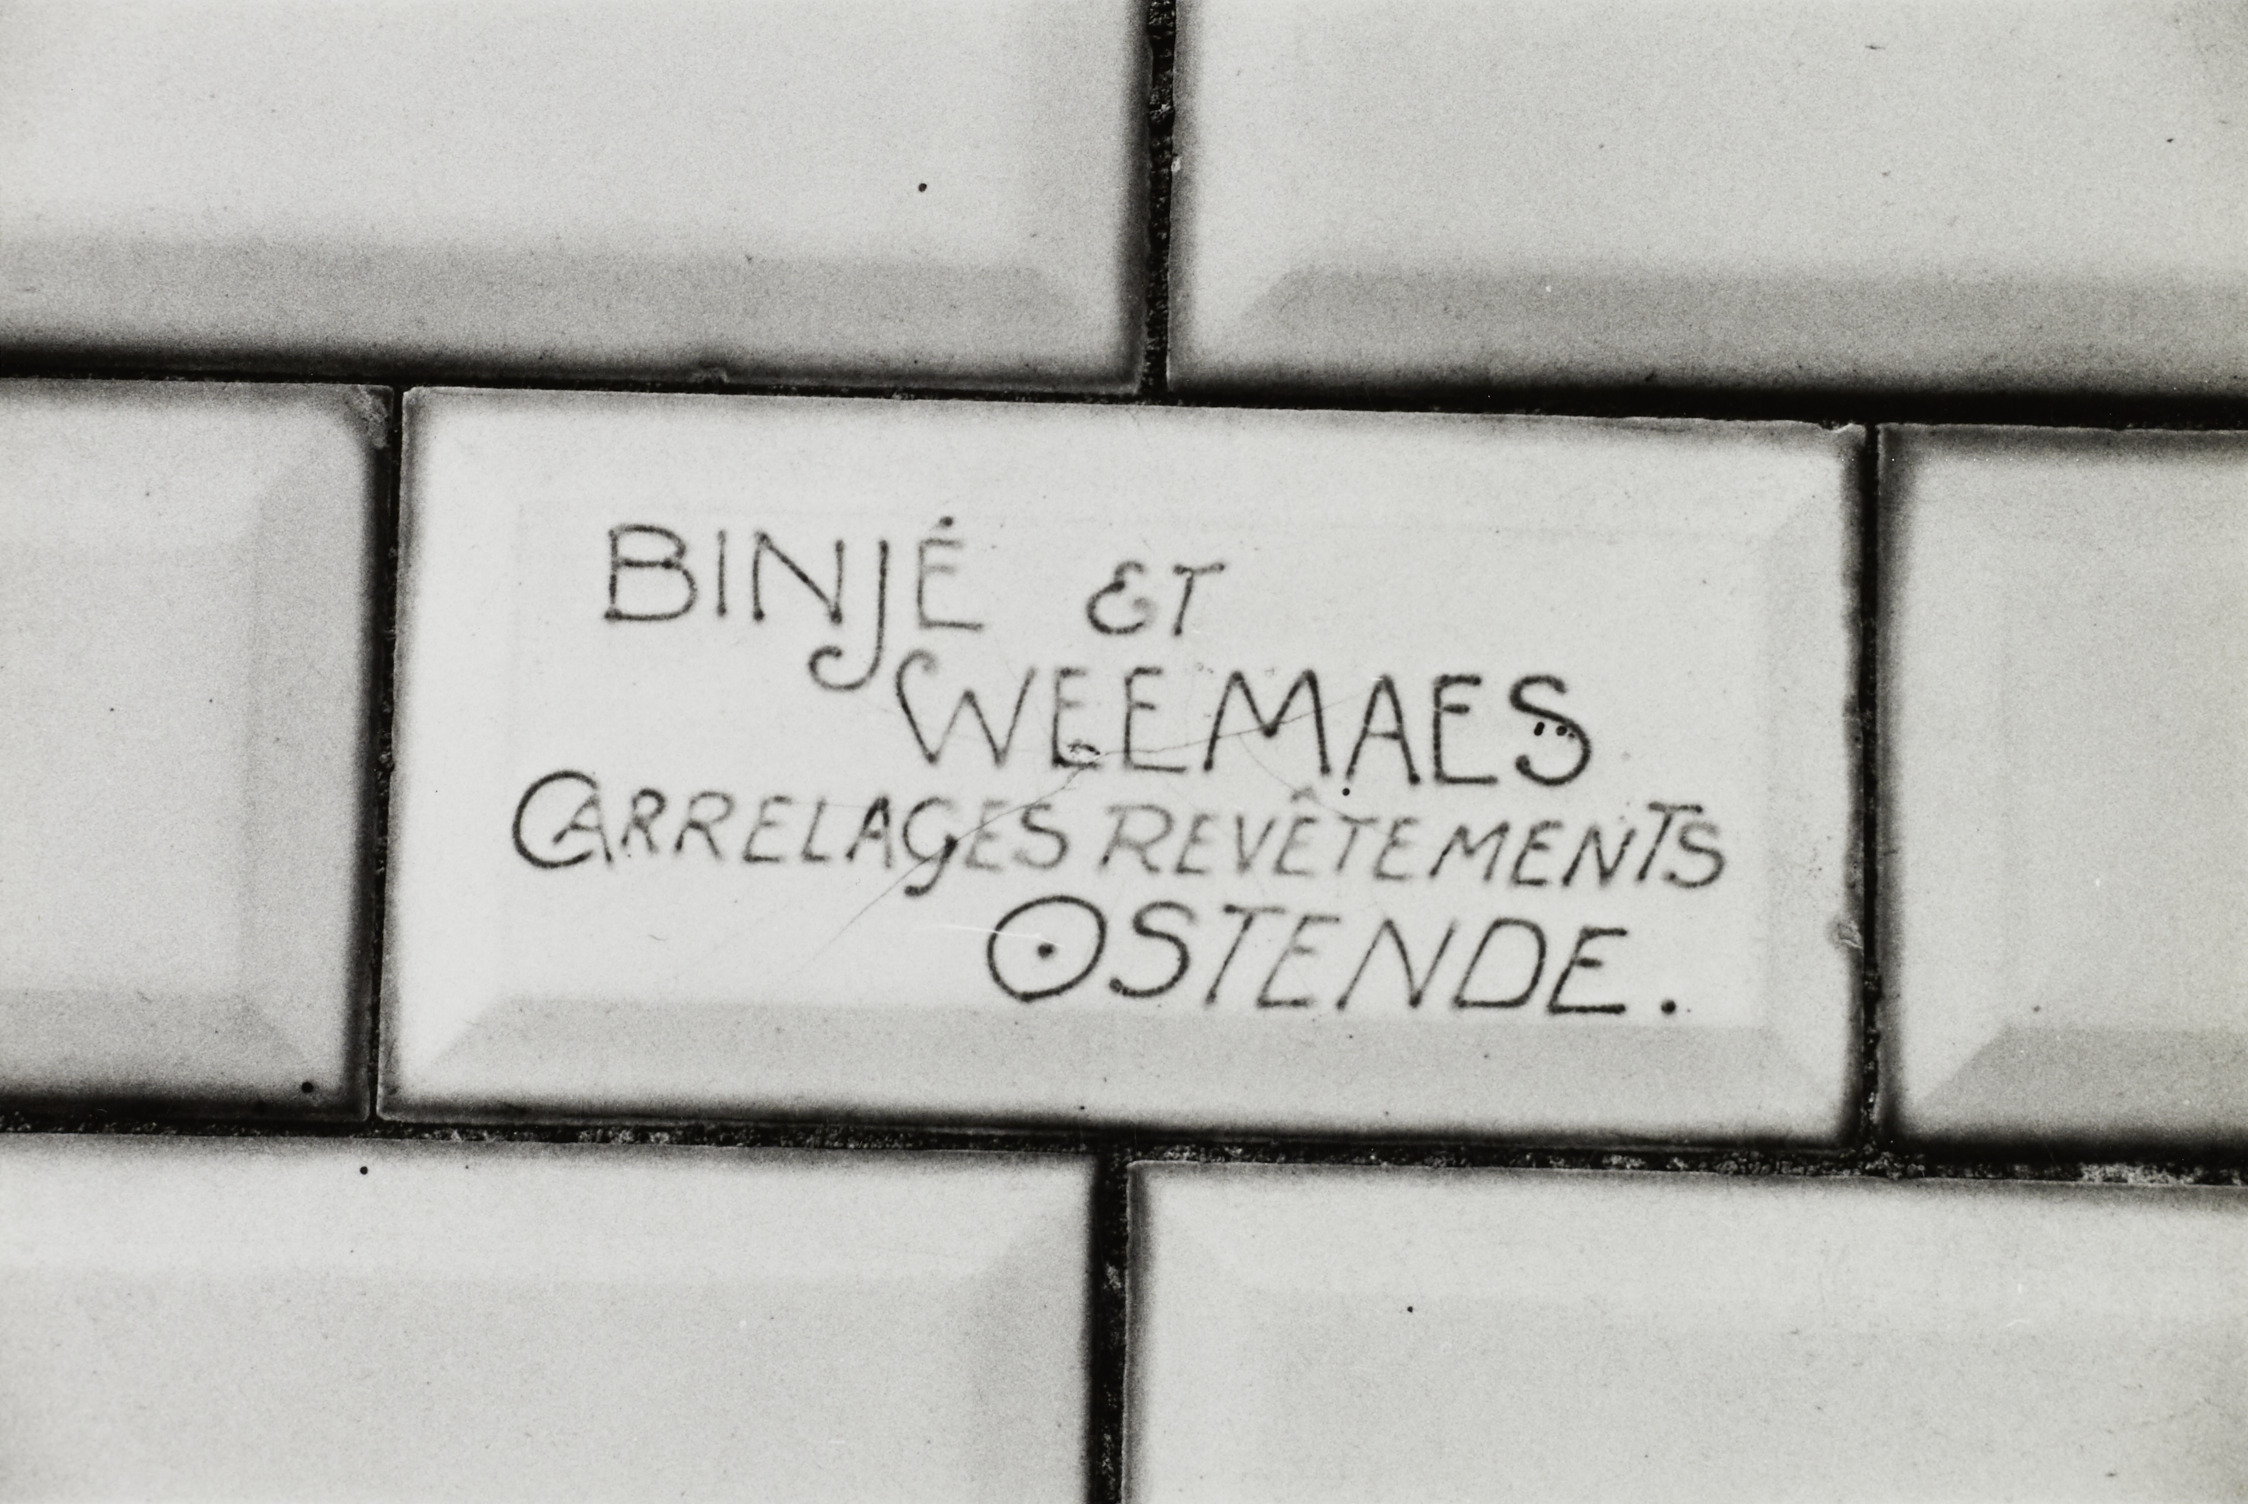 BINJÉ ET
WEEMAES
CARRELAGES REVÊTEMENTS
OSTENDE.